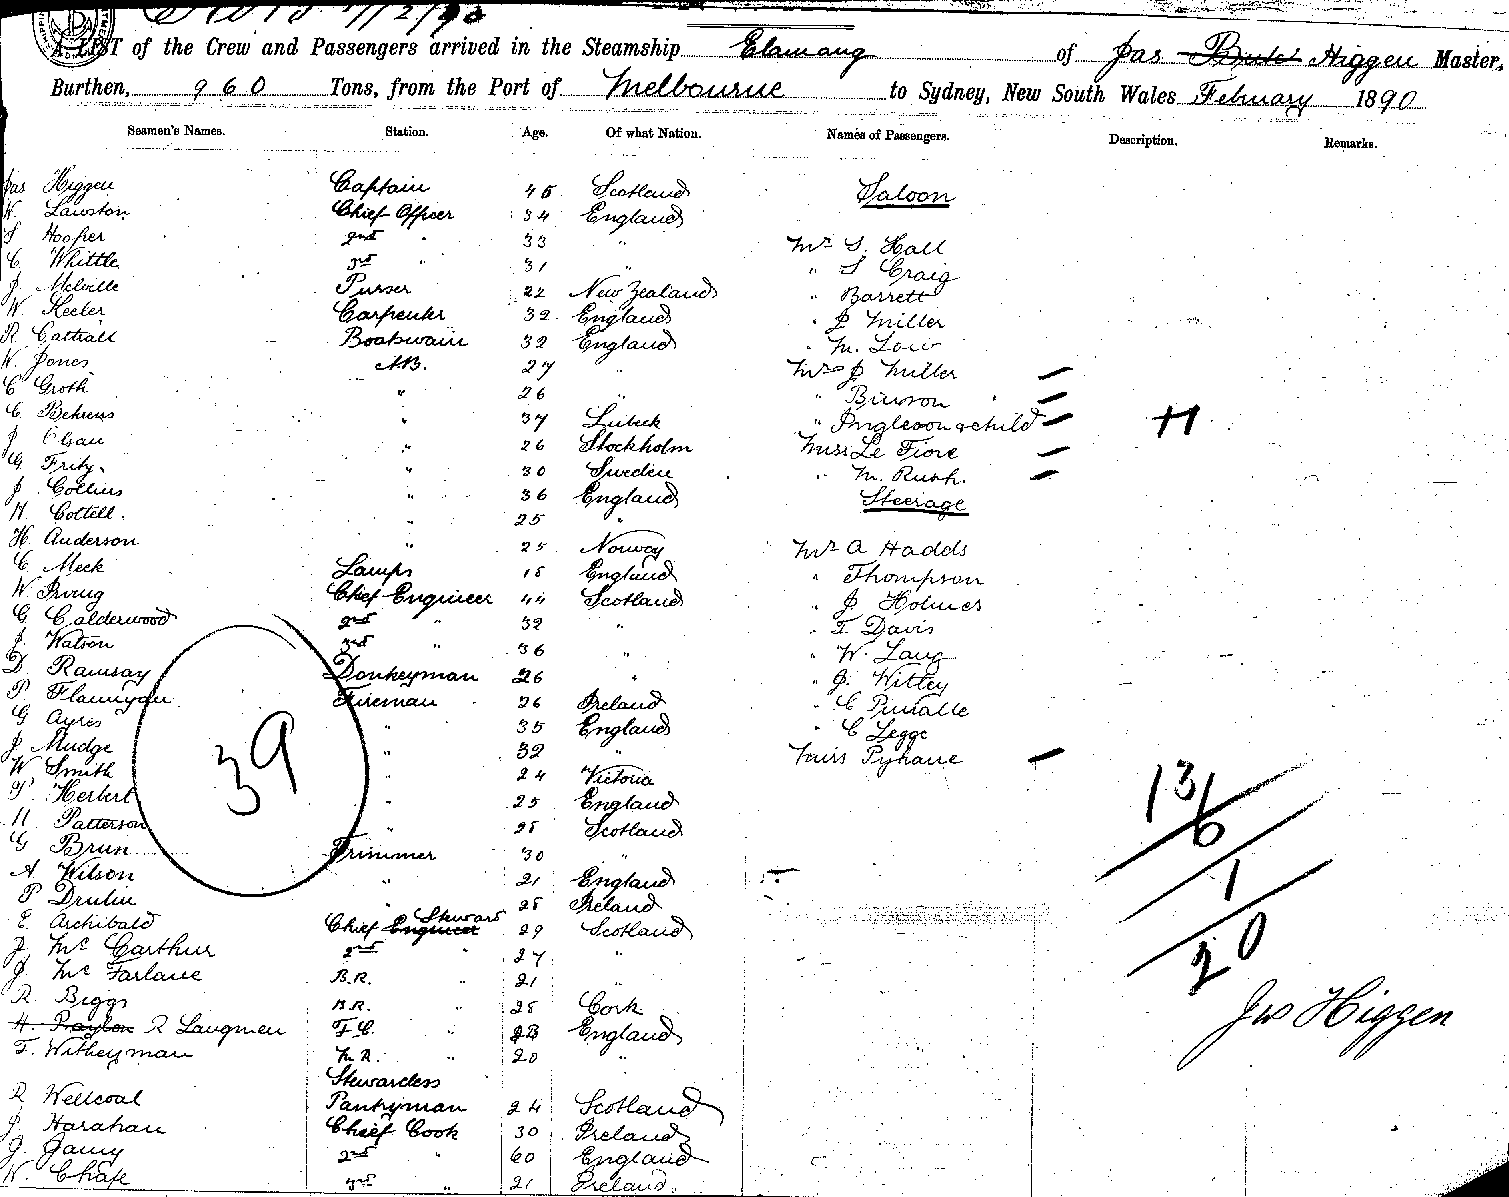 A LIST of the Crew and Passengers arrived in the Steamship Elamang of Jas Higgen Master,
Burthen, 960 Tons, from the Port of Melbourne to Sydney, New South Wales February 1890
Seamen's Names. Station. Age. Of what Nation. Names of Passengers. Description. Remarks.
Jas Higgen Captain 45 Scotland Saloon
W. Lawston Chief Officer 34 England
S Hooper 2nd " 33 " Mr S. Hall
C Whittle 3rd " 31 " " S Craig
J. Melville Purser 22 New Zealand " Barrett
W. Keeler Carpenter 32 England " J Miller
R Cattrall Boatswain 32 England " M. Low
W. Jones A.B. 27 " Mrs J Miller
C Groth " 26 " "
C. Behrens " 37 Lubeck " & child H
J Olsau " 26 Stockholm Miss Le Fiore
G Fritz " 30 Sweden " M. Rush.
J. Collins " 36 England Steerage
H. Cottell. " 25 "
H. Anderson " 25 Norway Mr A Hadds
C Meek Lamps 18 England " Thompson
W. Irving Chief Engineer 44 Scotland " J Holmes
G Calderwood 2nd " 32 " " T Davis
J. Watson 3rd " 36 " " W. Lang
D Ramsay Donkeyman 26 " " J. Wittey
P Flannigan Fireman 26 Ireland " C
G Ayres " 35 England " C Legge
J Mudge " 32 " Miss Pyhane
W Smith " 24 Victoria
P Herbert " 25 England
H Patterson " 28 Scotland
G Brun Trimmer 30 "
A. Wilson " 21 England
P Drulin " 28 Ireland
E. Archibald Chief Engineer Steward 29 Scotland
J. McCarthur 2nd " 27 "
J. McFarlane B.R. " 21 "
R. Biggs B.R. " 25 Cork
R Laugmen F.C. " 23 England
F. Witheyman M.R. " 20 "
Stewardess
R Wellcoal Pantryman 24 Scotland
J. Harahan Chief Cook 30 Ireland
J. Jamy 2nd " 60 England
W. Chafe 3rd " 21 Ireland
39
13/
6
1
20
Jas Higgen